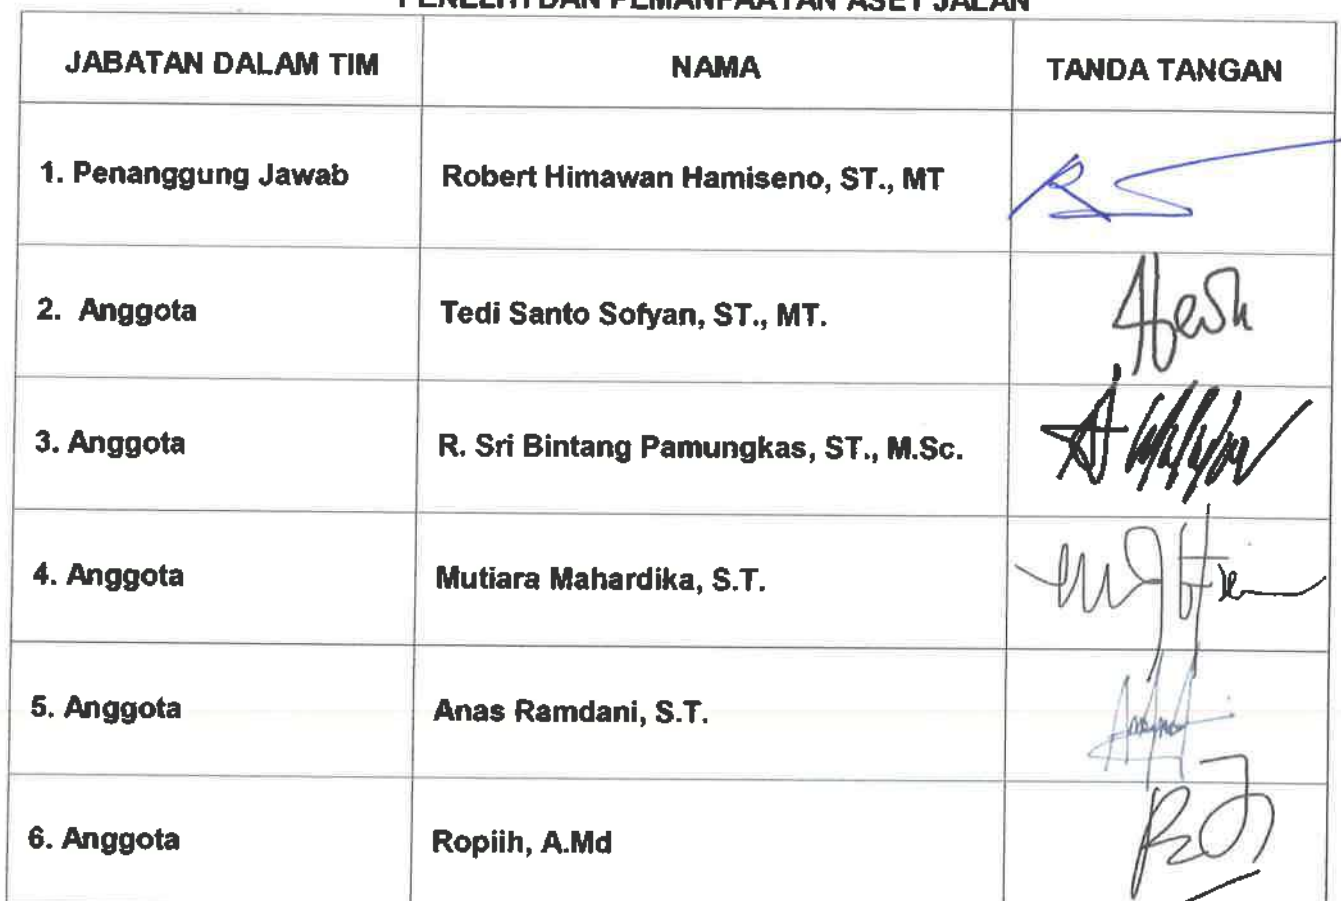 PENELITI DAN PEMANFAATAN ASET JALAN
JABATAN DALAM TIM NAMA TANDA TANGAN
1. Penanggung Jawab Robert Himawan Hamiseno, ST., MT
2. Anggota Tedi Santo Sofyan, ST., MT.
3. Anggota R. Sri Bintang Pamungkas, ST., M.Sc.
4. Anggota Mutiara Mahardika, S.T.
5. Anggota Anas Ramdani, S.T.
6. Anggota Ropiih, A.Md